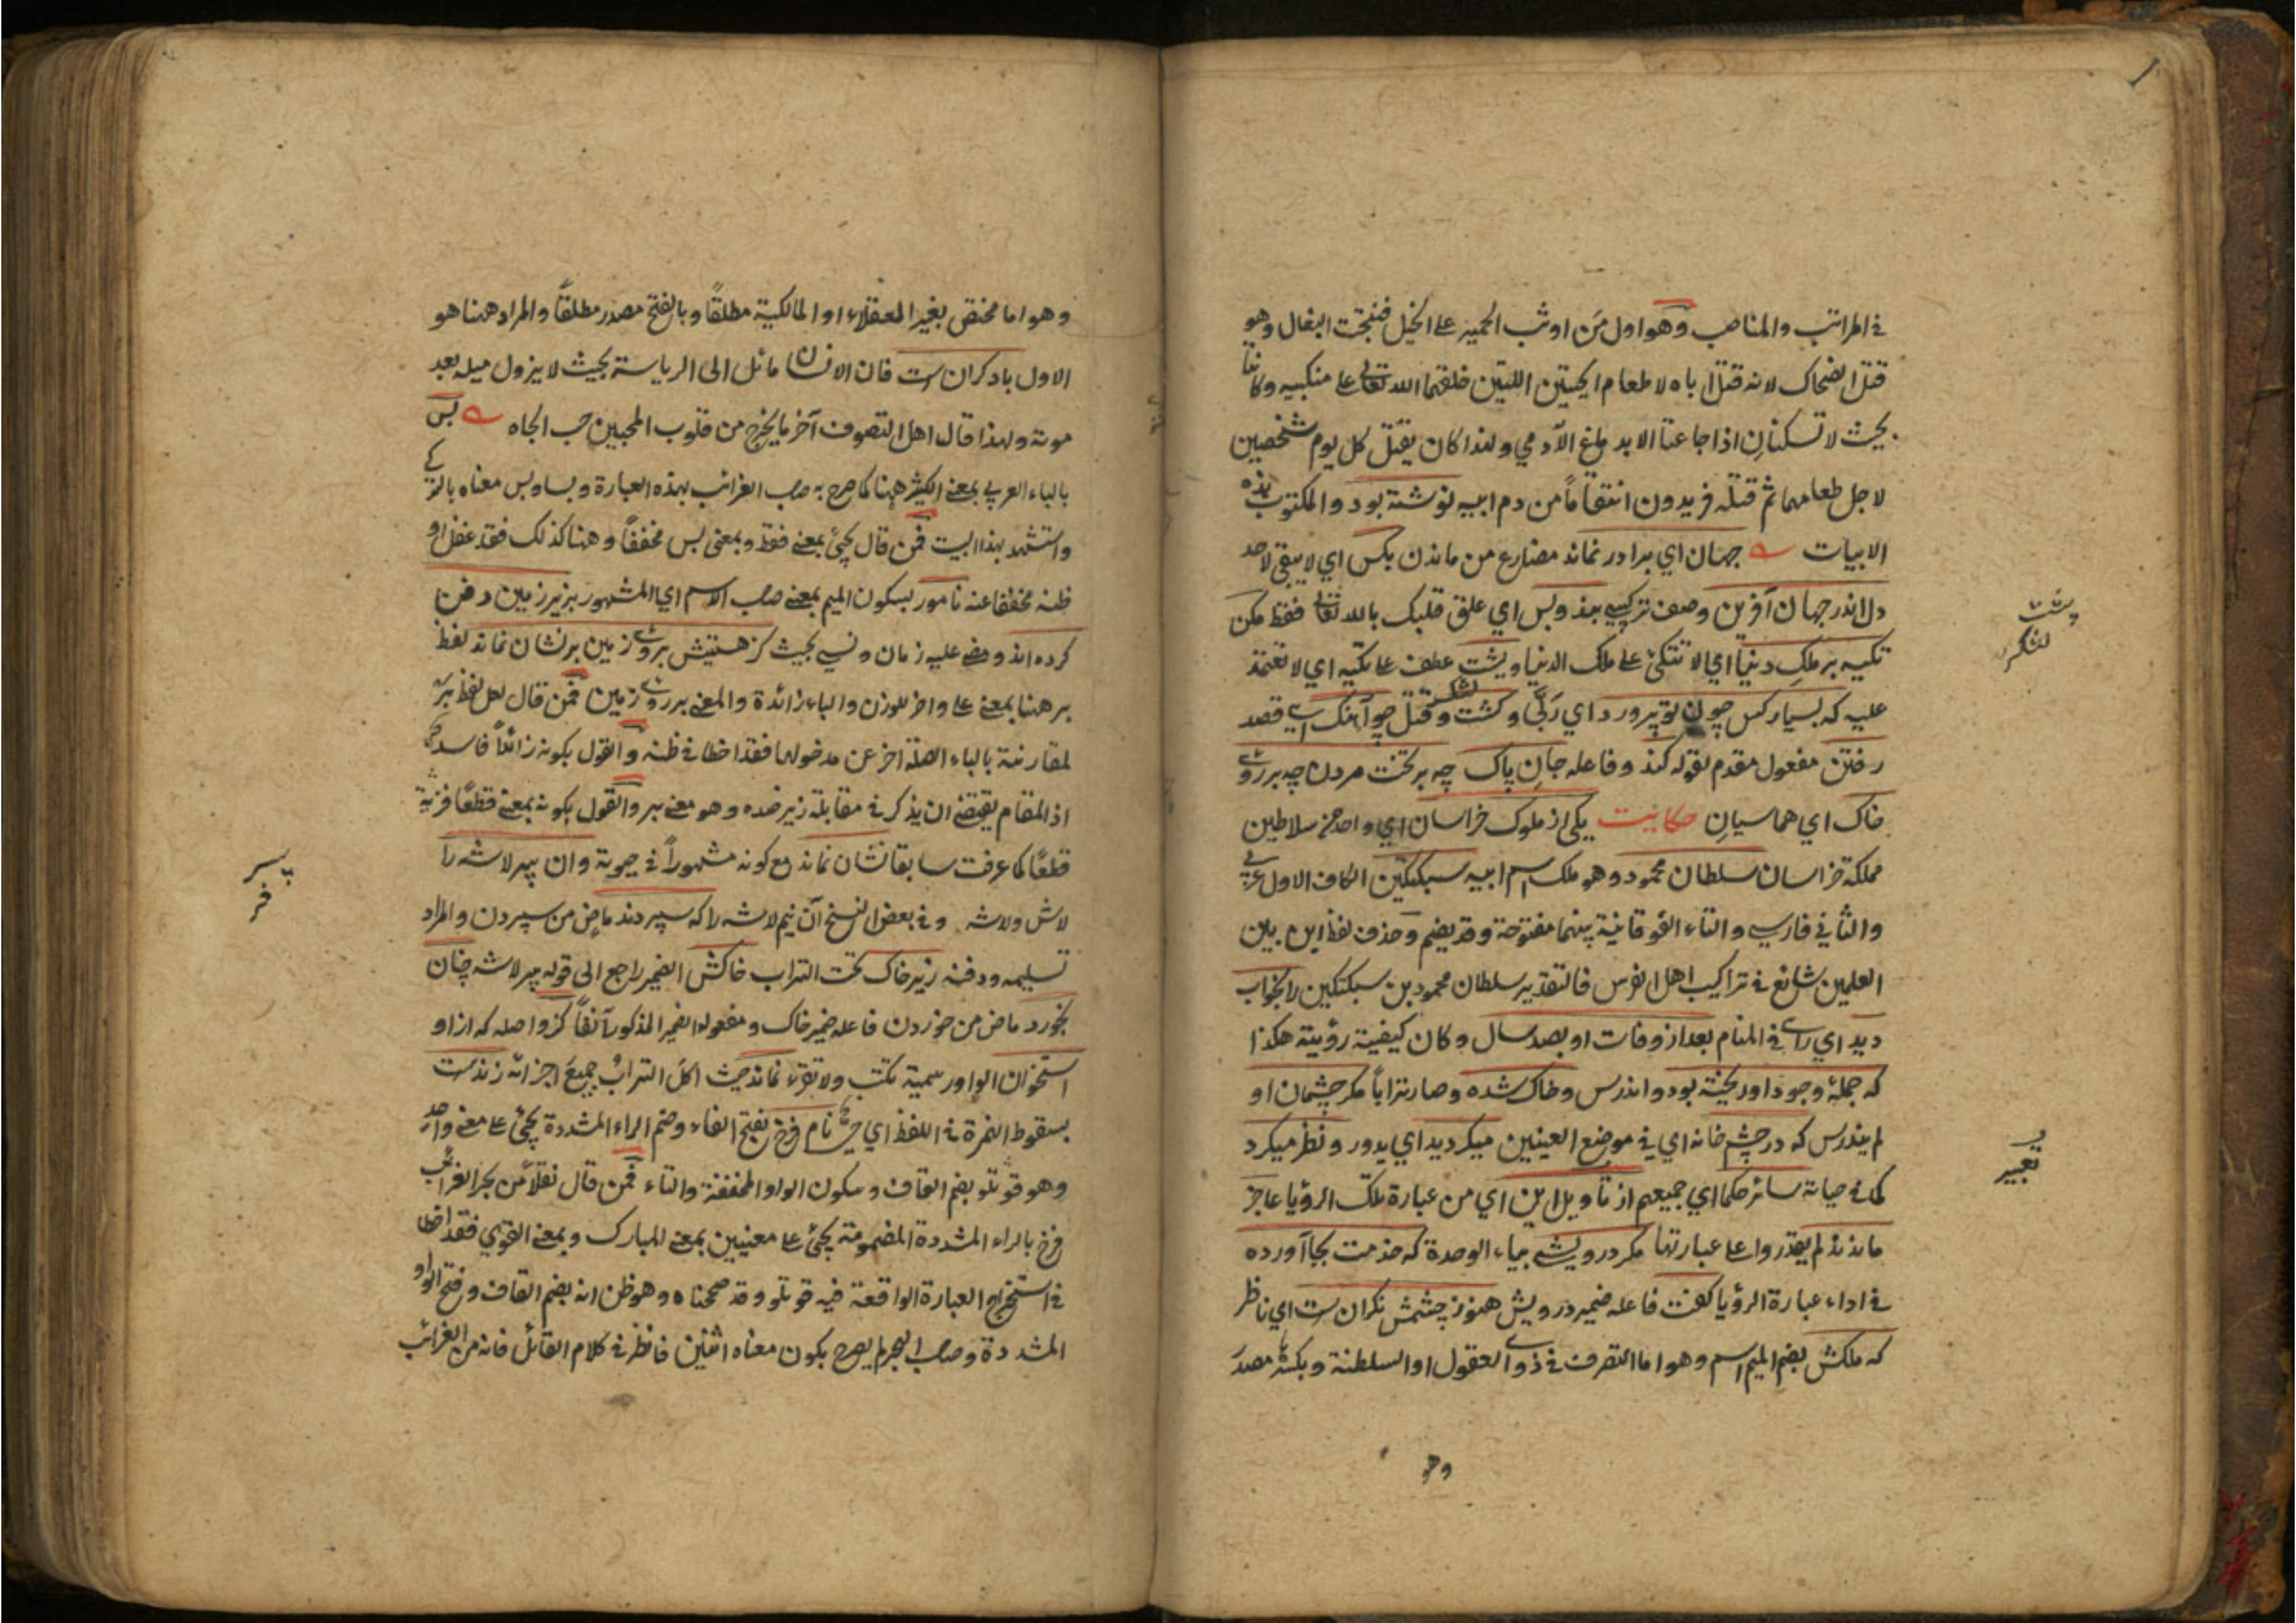 في المراتب والمناصب وهو اول من اوثب الحمير على الخيل فنتجت البغال وهو
قتل الضحاك لانه قتل اباه لاطعام الحيتين اللتين خلقهما الله تعالى على منكبيه وكانتا
بحيث لا تسكنان اذا جاعتا الا بدماغ الآدمي ولهذا كان يقتل كل يوم شخصين
لاجل طعامهما ثم قتله فريدون انتقاما من دم ابيه نوشته بود والمكتوب هذه
الابيات جهان اي برادر نماند مضارع من ماندن بكس اي لا يبقى لاحد
دل اندر جهان آفرين وصف تركيبي بند وبس اي علق قلبك بالله تعالى فقط مكن
تكيه بر ملك دنيا اي لا تتكئ على ملك الدنيا وپشت عطف على تكيه اي لا تعتمد
عليه كه بسيار كس چون تو پرورد اي ربى وكشت وقتل چو آهنك اي قصد
رفتن مفعول مقدم لقوله كند وفاعله جان پاك چه بر تخت مردن چه بر روى
خاك اي هما سيان حكايت يكى از ملوك خراسان اي واحد من سلاطين
مملكة خراسان سلطان محمود وهو ملك اسم ابيه سبكتكين الكاف الاول عربي
والثاني فارسي والتاء الفوقانية بينهما مفتوحة وقد يضم وحذف لفظ ابن بين
العلمين شائع في تراكيب اهل الفرس فالتقدير سلطان محمود بن سبكتكين را بخواب
ديد اي راى في المنام بعد از وفات او بصد سال وكان كيفية رؤيته هكذا
كه جمله وجود او ريخته بود واندرس وخاك شده وصار ترابا مكر چشمان او
لم يندرس كه در چشم خانه اي في موضع العينين ميكرديد اي يدور ونظر ميكرد
كما في حياته سائر حكما اي جميعهم از تأويل اين اي من عبارة تلك الرؤيا عاجز
ماندند لم يقدروا على عبارتها مكر درويشى بياء الوحدة كه خدمت بجا آورده
في اداء عبارة الرؤيا كفت فاعله ضمير درويش هنوز چشمش نكران ست اي ناظر
كه ملكش بضم الميم اسم وهو اما التصرف في ذوى العقول او السلطنة وبكسرها مصدر
وهو
پشت
لشكر
تعبير
وهو اما مختص بغير العقلاء او المالكية مطلقا وبالفتح مصدر مطلقا والمراد هنا هو
الاول با دكران ست فان الانسان مائل الى الرياسة بحيث لا يزول ميله بعد
موته ولهذا قال اهل التصوف آخر ما يخرج من قلوب المحبين حب الجاه بس
بالباء العربي بمعنى الكثير ههنا كما صرح به صاحب الغرائب بهذه العبارة وبسا وبس معناه بالتركي
واستشهد بهذا البيت فمن قال يجئ بمعنى فقط وبمعنى بس مخففا وهنا كذلك فقد غفل او
ظنه مخففا عنه نامور بسكون الميم بمعنى صاحب الاسم اي المشهور بزير زمين دفن
كرده اند ومضى عليه زمان ونسي بحيث كز هستيش بروى زمين بر نشان نماند لفظ
بر هنا بمعنى على واخر للوزن والباء زائدة والمعنى بر روى زمين فمن قال لعل لفظ بر
لمقارنته بالباء الصلة اخر عن مدخولها فقد اخطا في ظنه والقول بكونه زائدا فاسد
اذ المقام يقتضي ان يذكر في مقابلة زير ضده وهو معنى بر والقول بكونه بمعنى قطعا فرية
قطعا كما عرفت سابقا نشان نماند مع كونه مشهورا في حيوته وان پير لاشه را
لاش ولاشه وفي بعض النسخ آن نيم لاشه را كه سپردند ماض من سپردن والمراد
تسليمه ودفنه زير خاك تحت التراب خاكش الضمير راجع الى قوله پير لاشه چنان
بخورد ماض من خوردن فاعله ضمير خاك ومفعوله الضمير المذكور آنفا كزو اصله كه از او
استخوان الواو رسمية تكتب ولا تقرء نماند حيث اكل التراب جميع اجزائه زندست
بسقوط الهمزة في اللفظ اي حي نام فرخ بفتح الفاء وضم الراء المشددة يجئ على معنى واحد
وهو قوتلو بضم القاف وسكون الواو المخففة والتاء فمن قال نقلا من بحر الغرائب
فرخ بالراء المشددة المضمومة يجئ على معنيين بمعنى المبارك وبمعنى القوي فقد اخطا
في استخراج العبارة الواقعة فيه قوتلو وقد صححناه وهو ظن انه بضم القاف وفتح الواو
المشددة وصاحب البحر لم يصرح بكون معناه اثنين فانظر في كلام القائل فانه من الغرائب
پير
فرخ